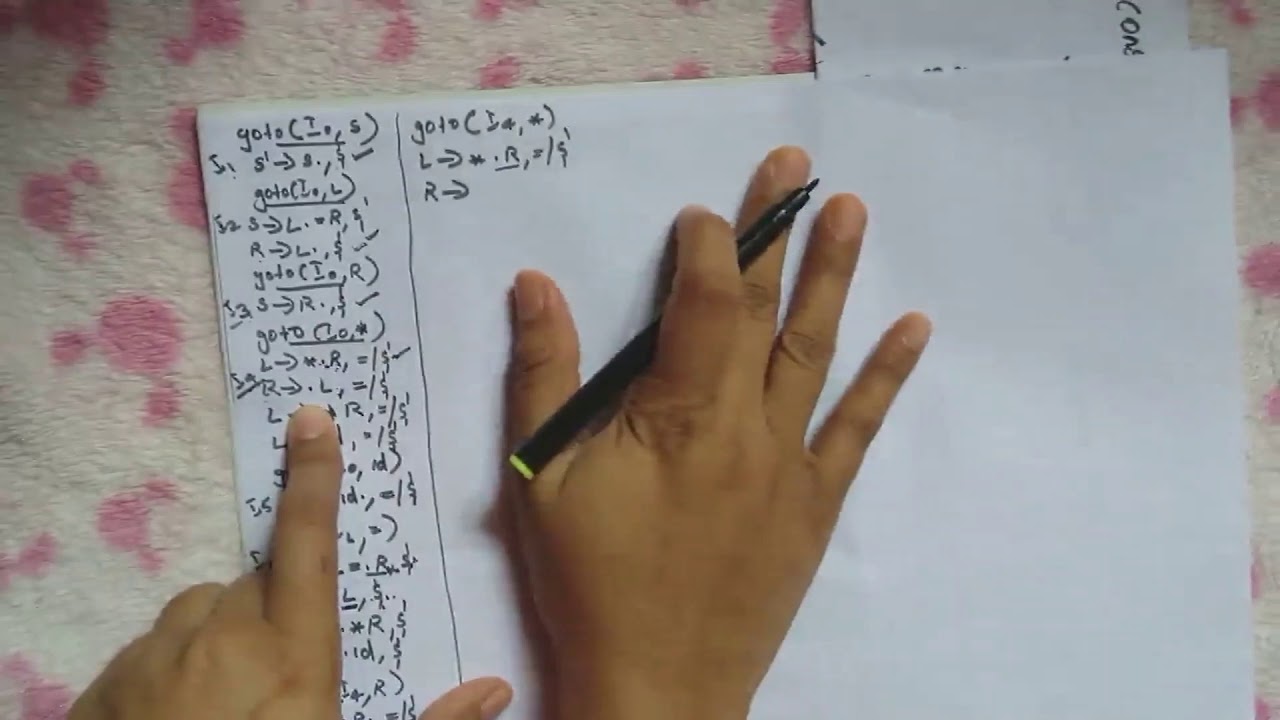 goto(I0, S)
I1 S'→S., $ ✓
goto(I0, L)
I2 S→L.=R, $
R→L., $ ✓
goto(I0, R)
I3 S→R., $ ✓
goto(I0, *)
L→*.R, =/$ ✓
I4 R→.L, =/$
L→ * R, =/$
L , =/$
, id)
I5 id., =/$
, =)
=.R, $
L, $
.*R, $
.id, $
I4, R)
R., =/$
goto(I4, *)
L→*.R, =/$
R→
CONE